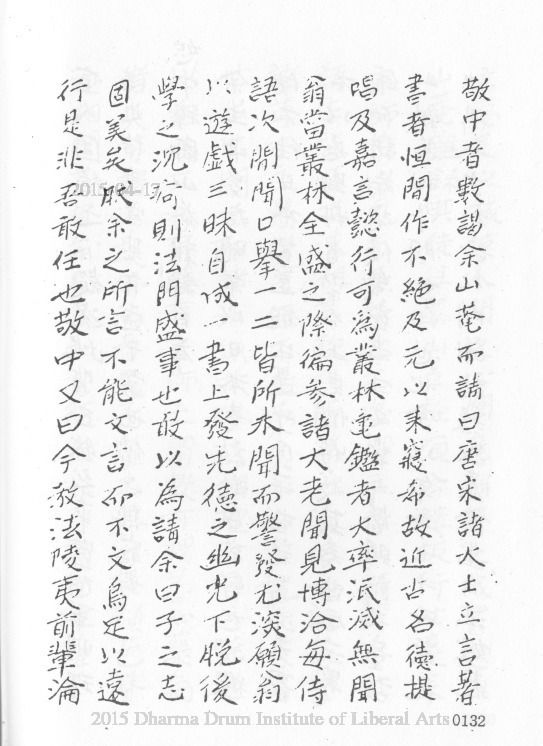 敬中者數謁余山菴而請曰唐宋諸大士立言著
書者恒間作不絕及元以来寔希故近古名德提
唱及嘉言懿行可為叢林龜鑑者大率泯滅無聞
翁當叢林全盛之際徧參諸大老聞見博洽每侍
語次間聞口舉一二皆所未聞而警發尤深願翁
以遊戲三昧自成一書上發先德之幽光下脫後
學之沉痾則法門盛事也敢以為請余曰子之志
固美矣眎余之所言不能文言而不文烏足以遠
行是非吾敢任也敬中又曰今教法陵夷前輩淪
2015-04-17
2015 Dharma Drum Institute of Liberal Arts
0132